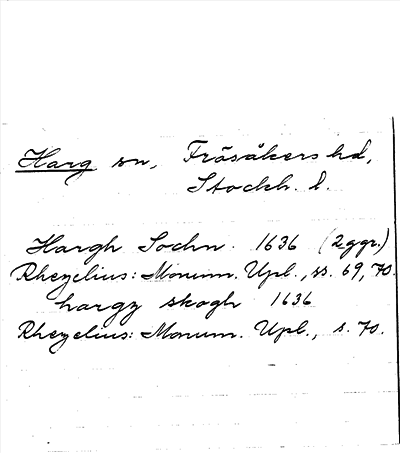 Harg sn, Frösåkers hd,
Stockh. l.
Hargh Sochn. 1636 (2ggr.)
Rhezelius: Monum. Upl., ss. 69, 70.
hargz skogh 1636
Rhezelius: Monum. Upl., s. 70.